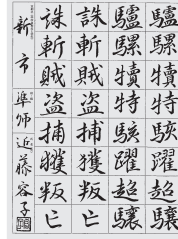 驢騾犢特駭躍超驤
驢騾犢特駭躍超驤
誅斬賊盗捕獲叛亡
誅斬賊盗捕獲叛亡
新市 準師 近藤容子